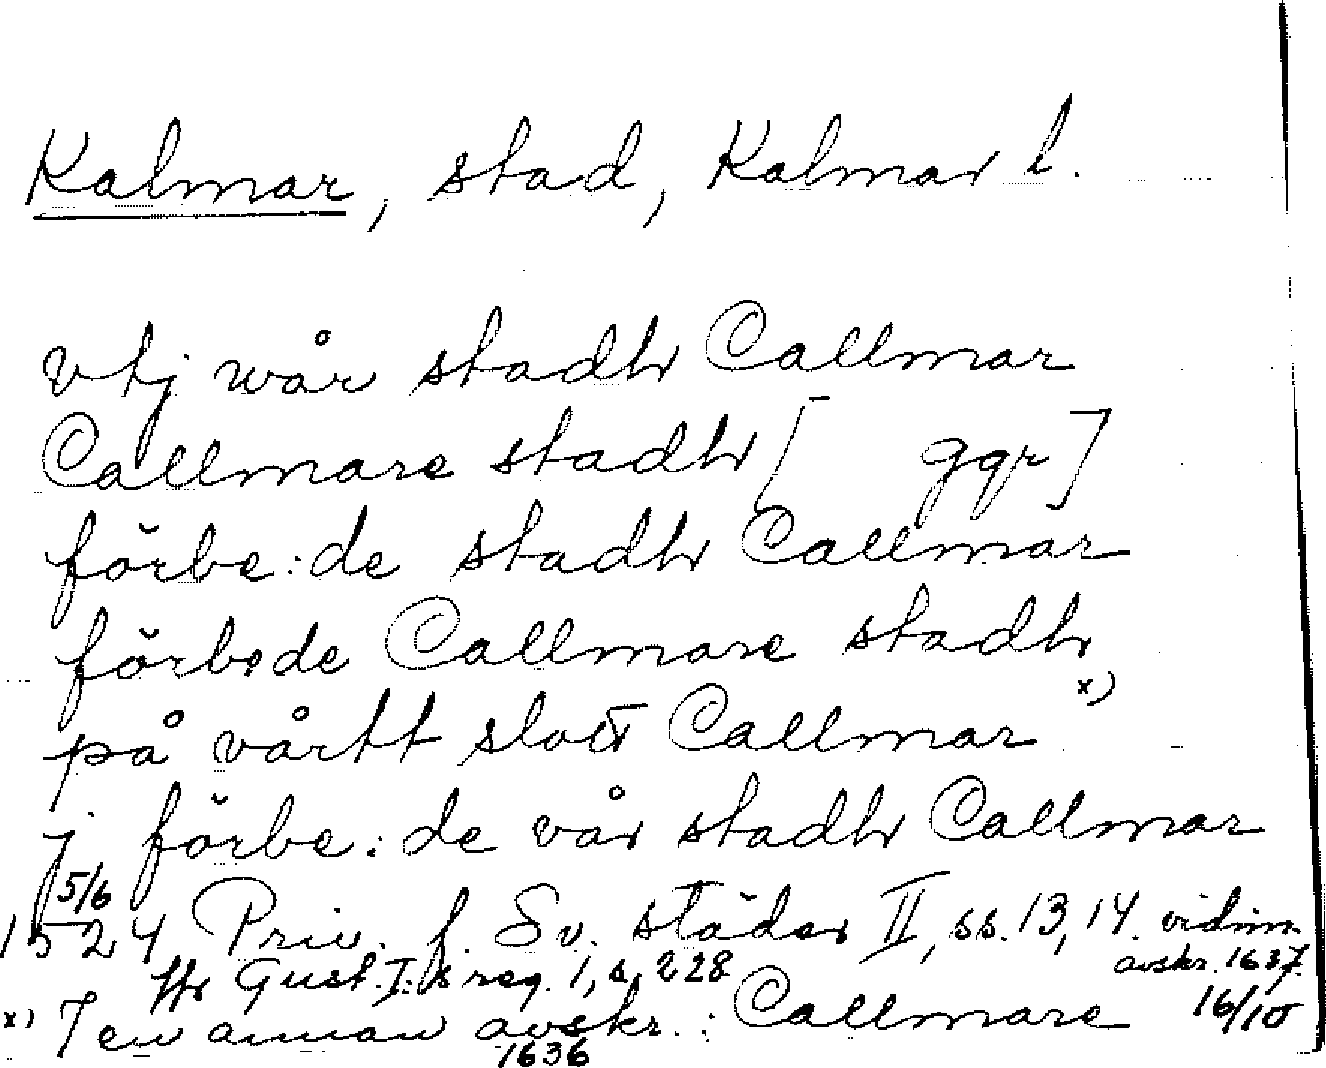 Kalmar, stad, Kalmar l.
vtj wår stadh Callmar
Callmare stadh [ ggr]
förbe:de stadh Callmar
förbede Callmare stadh
på vårtt slott Callmar x)
j förbe:de vår stadh Callmar
5/6
1524 Priv. f. Sv. städer II, ss. 13, 14. vidim.
avskr. 1637.
Gust. I:s reg. 1, s. 228
16/10
x) I en annan avskr.: Callmare
1636